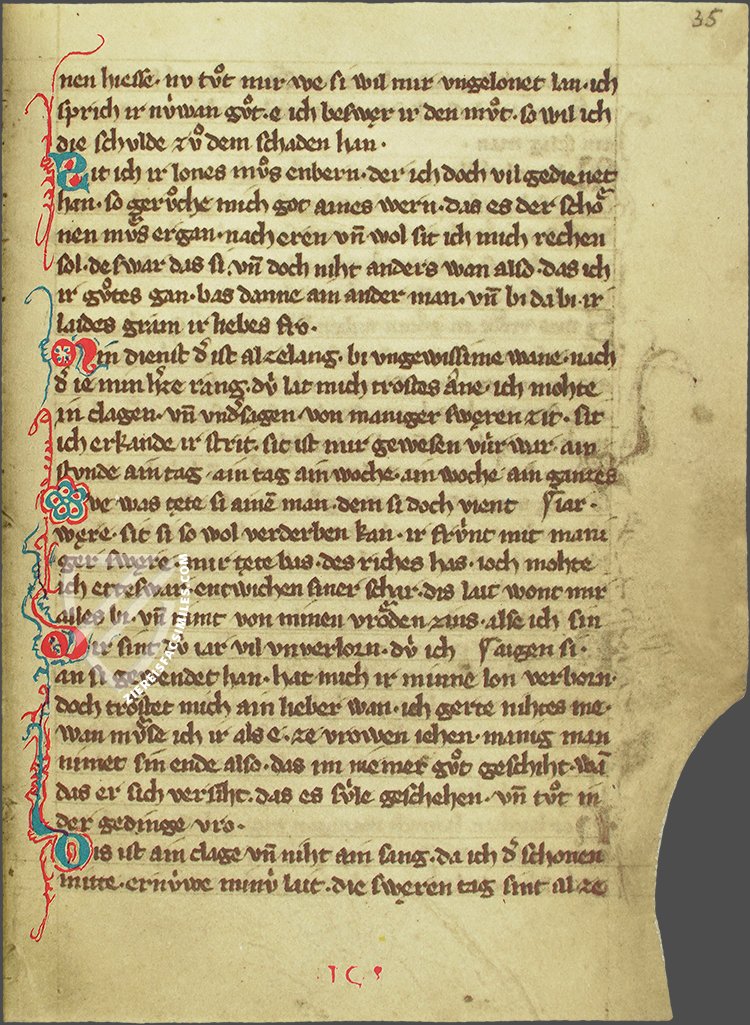 35
nen hiesse · nv tuͦt mir we si wil mir vngelonet lan · ich
sprich ir nv̍wan guͦt · e ich beswęr ir den muͦt · so wil ich
die schulde zuͦ dem schaden han ·
Sit ich ir lones muͦs enbern · der ich doch vil gedienet
han · so geruͦche mich got aines wern · das es der schoͤ
nen muͤs ergan · nach eren vn̄ wol sit ich mich rechen
sol · deswar das si · vn̄ doch niht anders wan also · das ich
ir guͦtes gan · bas danne ain ander man · vn̄ bi da bi · ir
laides gram ir liebes fro ·
Min dienst dˀ ist alzelang · bi vngewissime wane · nach
dˀ ie min hˀze rang · dv̍ lat mich trostes âne · ich mohte
in clagen · vn̄ vndˀsagen · von maniger swęren zit · sit
ich erkande ir strit · sit ist mir gewesen vúr war · ain
stvnde ain tag · ain tag ain woche · ain woche ain ganzes
Owe was tete si ainē man · dem si doch vient ſiar ·
węre · sit si so wol verderben kan · ir frv̍nt mit mani
ger swęre · mir tete bas · des riches has · ioch mohte
ich etteswar · entwichen siner schar · dis lait wont mir
alles bi · vn̄ nimt von minen vroͤden zins · alse ich sin
Mir sint dv̍ iar vil vnverlorn · dv̍ ich ſaigen si ·
an si gewendet han · hat mich ir minne lon verborn ·
doch troͤstet mich ain lieber wan · ich gerte nihtes me ·
wan mv̍se ich ir als e · ze vrowen iehen · manig man
nimet sin ende also · das im niemer guͦt geschiht · wā
das er sich versiht · das es súle geschehen · vn̄ tuͦt in
der gedinge vro ·
Dis ist ain clage vn̄ niht ain sang · da ich dˀ schonen
mitte · ernv̍we minv̍ lait · die swęren tag sint al ze
TIERESFACSIMILES.COM